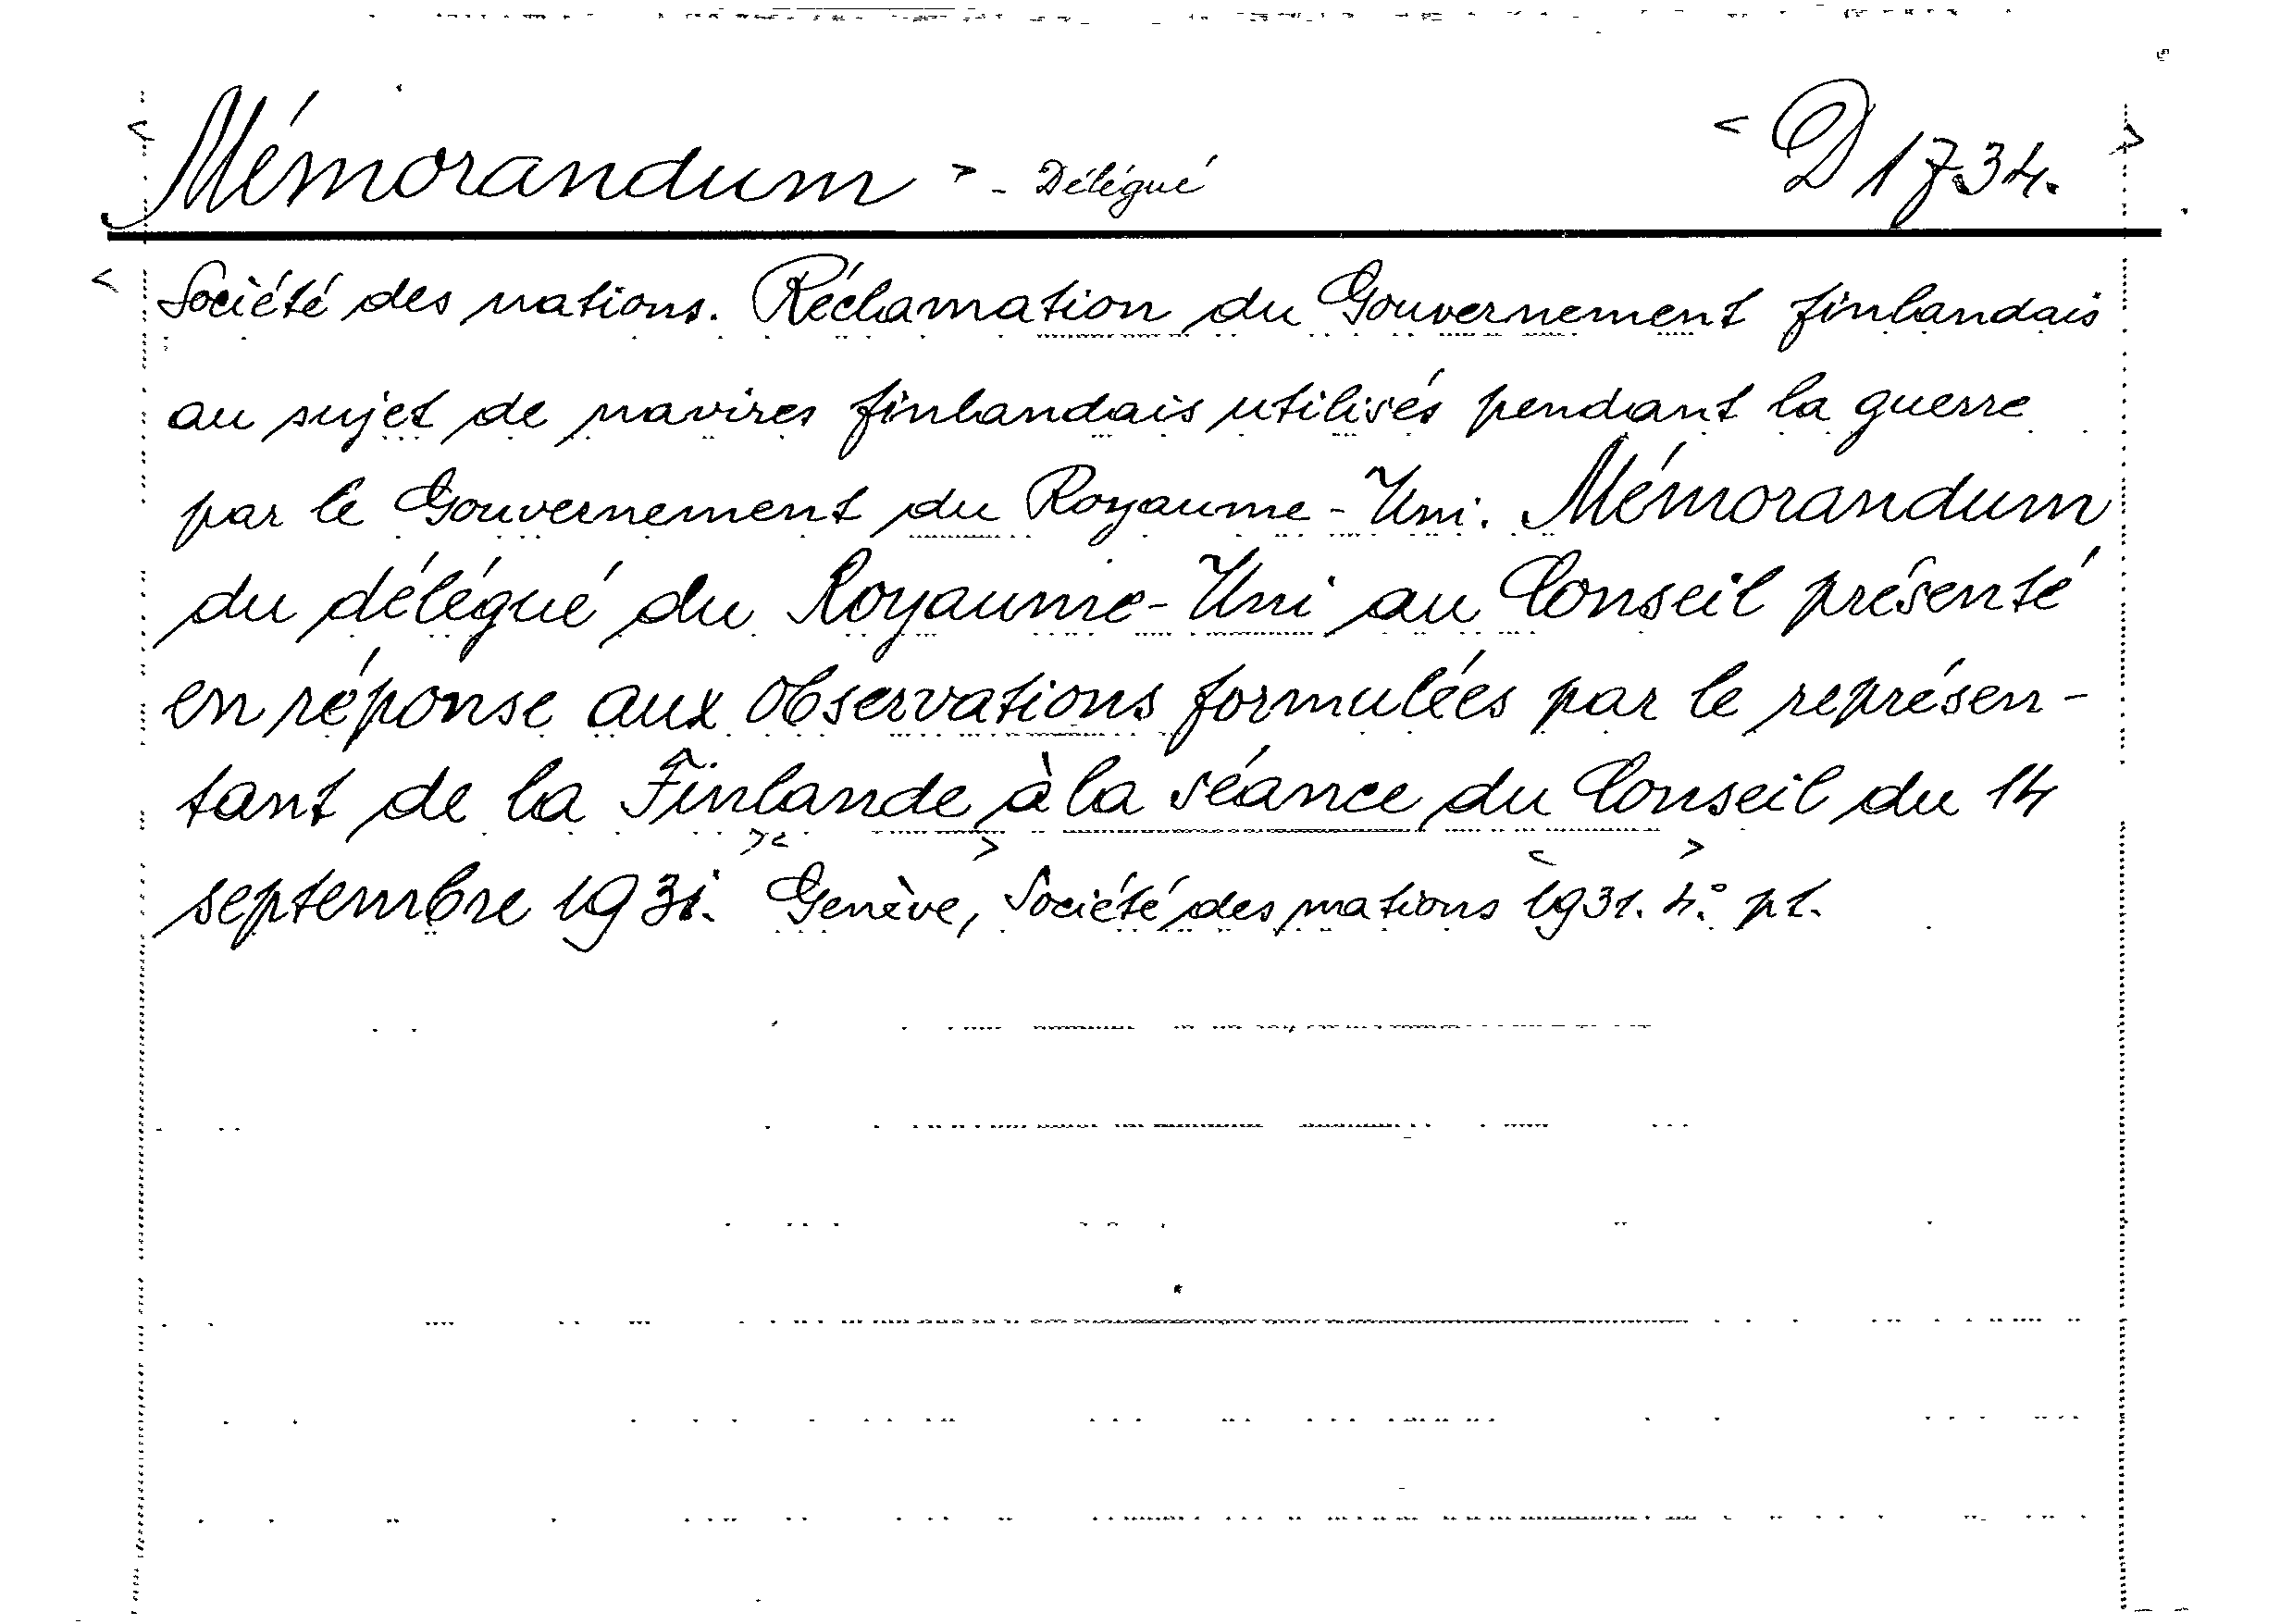 <Mémorandum> - Délégué <D 1734.>
<Société des nations. Réclamation du Gouvernement finlandais
au sujet de navires finlandais utilisés pendant la guerre
par le Gouvernement du Royaume-Uni. Mémorandum
du délégué du Royaume-Uni au Conseil présenté
en réponse aux observations formulées par le représen-
tant de la Finlande à la séance du Conseil du 14
septembre 1931.>< Genève,> Société des nations <1931.> 4:o pt.